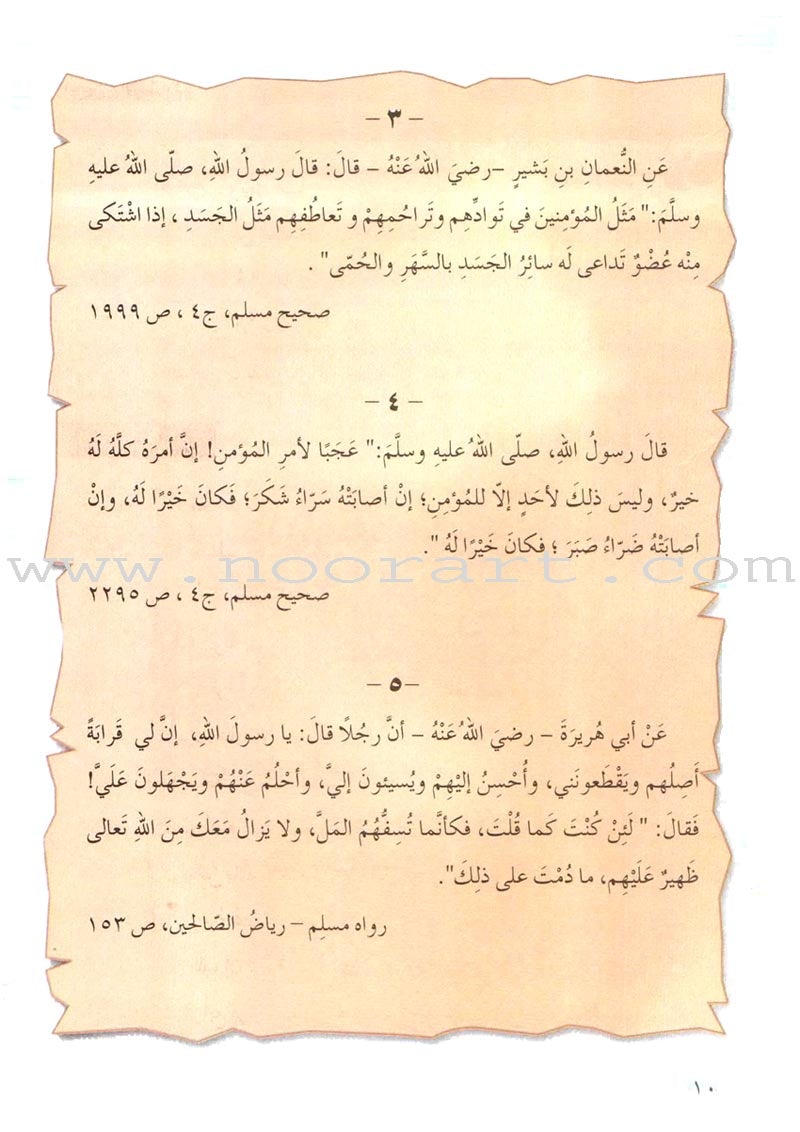 – ٣ –
عَنِ النُّعمانِ بنِ بَشيرٍ –رضيَ اللهُ عَنْهُ – قالَ: قالَ رسولُ اللهِ، صلّى اللهُ عليهِ
وسلَّمَ:" مَثَلُ المُؤمِنينَ في تَوادِّهِم وتَراحُمِهِمْ و تَعاطُفِهِم مَثَلُ الجَسَدِ ، إذا اشْتَكى
مِنْه عُضْوٌ تَداعى لَه سائِرُ الجَسَدِ بالسَّهَرِ والحُمّى" .
صحيح مسلم، ج٤ ، ص ١٩٩٩
– ٤ –
قالَ رسولُ اللهِ، صلّى اللهُ عليهِ وسلَّمَ:" عَجَبًا لأمرِ المُؤمنِ! إنَّ أمرَهُ كلَّهُ لَهُ
خيرٌ، وليسَ ذلِكَ لأحَدٍ إلاّ للمُؤمِنِ؛ إنْ أصابَتْهُ سَرّاءُ شَكَرَ؛ فَكانَ خَيْرًا لَهُ، وإنْ
أصابَتْهُ ضَرّاءُ صَبَرَ ؛ فَكانَ خَيْرًا لَهُ ".
www.noorart.com
صحيح مسلم، ج٤ ، ص ٢٢٩٥
–٥ –
عَنْ أبي هُريرَةَ – رضيَ اللهُ عَنْهُ – أنَّ رجُلًا قالَ: يا رسولَ اللهِ، إنَّ لي قَرابَةً
أَصِلُهم ويَقْطَعونَني، وأُحْسِنُ إلَيْهِمْ ويُسيئونَ إليَّ، وأحْلُمُ عَنْهُمْ ويَجْهَلونَ عَلَيَّ!
فَقالَ: " لَئِنْ كُنْتَ كَما قُلْتَ، فكأنَّما تُسِفُّهُمُ المَلَّ، ولا يَزالُ مَعَكَ مِنَ اللهِ تَعالى
ظَهيرٌ عَلَيْهِم، ما دُمْتَ على ذلِكَ".
رواه مسلِم – رياضُ الصّالحين، ص ١٥٣
١٠